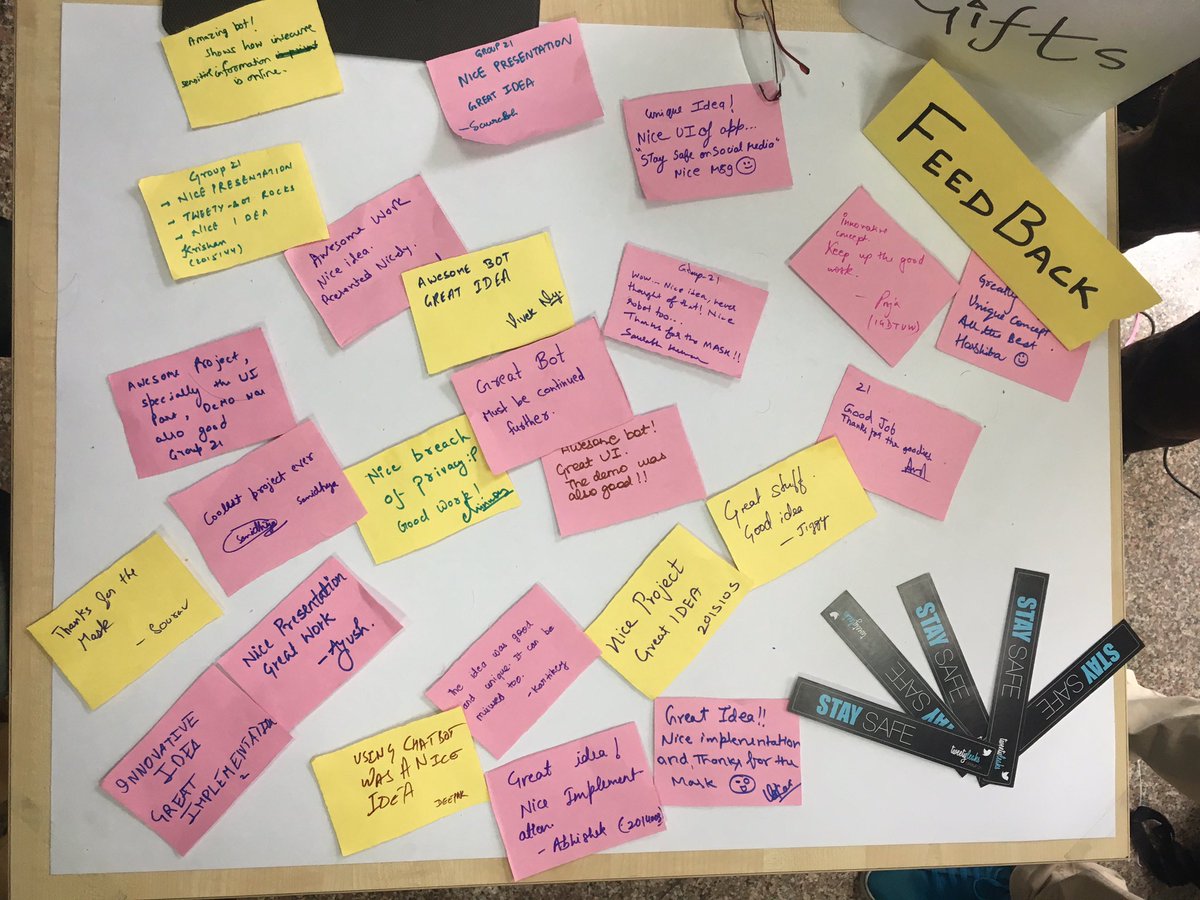 Amazing bot!
Shows how insecure
sensitive information
is online.
GROUP 21
NICE PRESENTATION
GREAT IDEA
- Sourabh
Unique Idea!
Nice UI of app...
"Stay Safe on Social Media"
Nice Msg
Gifts
FEEDBACK
Group 21
→ NICE PRESENTATION
→ TWEETY-BOT ROCKS
→ NICE IDEA
Krishan
(2015144)
Awesome Work
Nice idea.
Presented Nicely.
AWESOME BOT
GREAT IDEA
Vivek
Group-21
Wow... Nice idea, never
thought of that! Nice
robot too...
Thanks for the MASK!!
Sourabh Kumar
innovative
concept.
Keep up the good
work.
(IGDTUW)
Greatly
Unique Concept.
All the Best.
Harshita
Awesome Project,
specially the UI
part, Demo was
also good
Group 21
Great Bot
Must be continued
further.
21
Good Job
Thanks for the goodies
Coolest project ever
Samidhya
Samidhya
Nice breach
of privacy :P
Good work!
Awesome bot!
Great UI.
The demo was
also good!!
Great stuff.
Good idea
- Jiggy
Thanks for the
Mask
- Sourav
Nice Presentation
Great Work
- Ayush.
The idea was good
and unique. It can be
too.
- Kartikey
Nice Project
Great IDEA
2015105
INNOVATIVE
IDEA
GREAT
IMPLEMENTATION
USING CHATBOT
WAS A NICE
IDEA
DEEPAK
Great idea!
Nice Implement
ation.
- Abhishek
Great Idea!!
Nice implementation
and Thanks for the
Mask
STAY SAFE
tweetyleaks
STAY SAFE
STAY SAFE
tweetyleaks
STAY SAFE
tweetyleaks
STAY SAFE